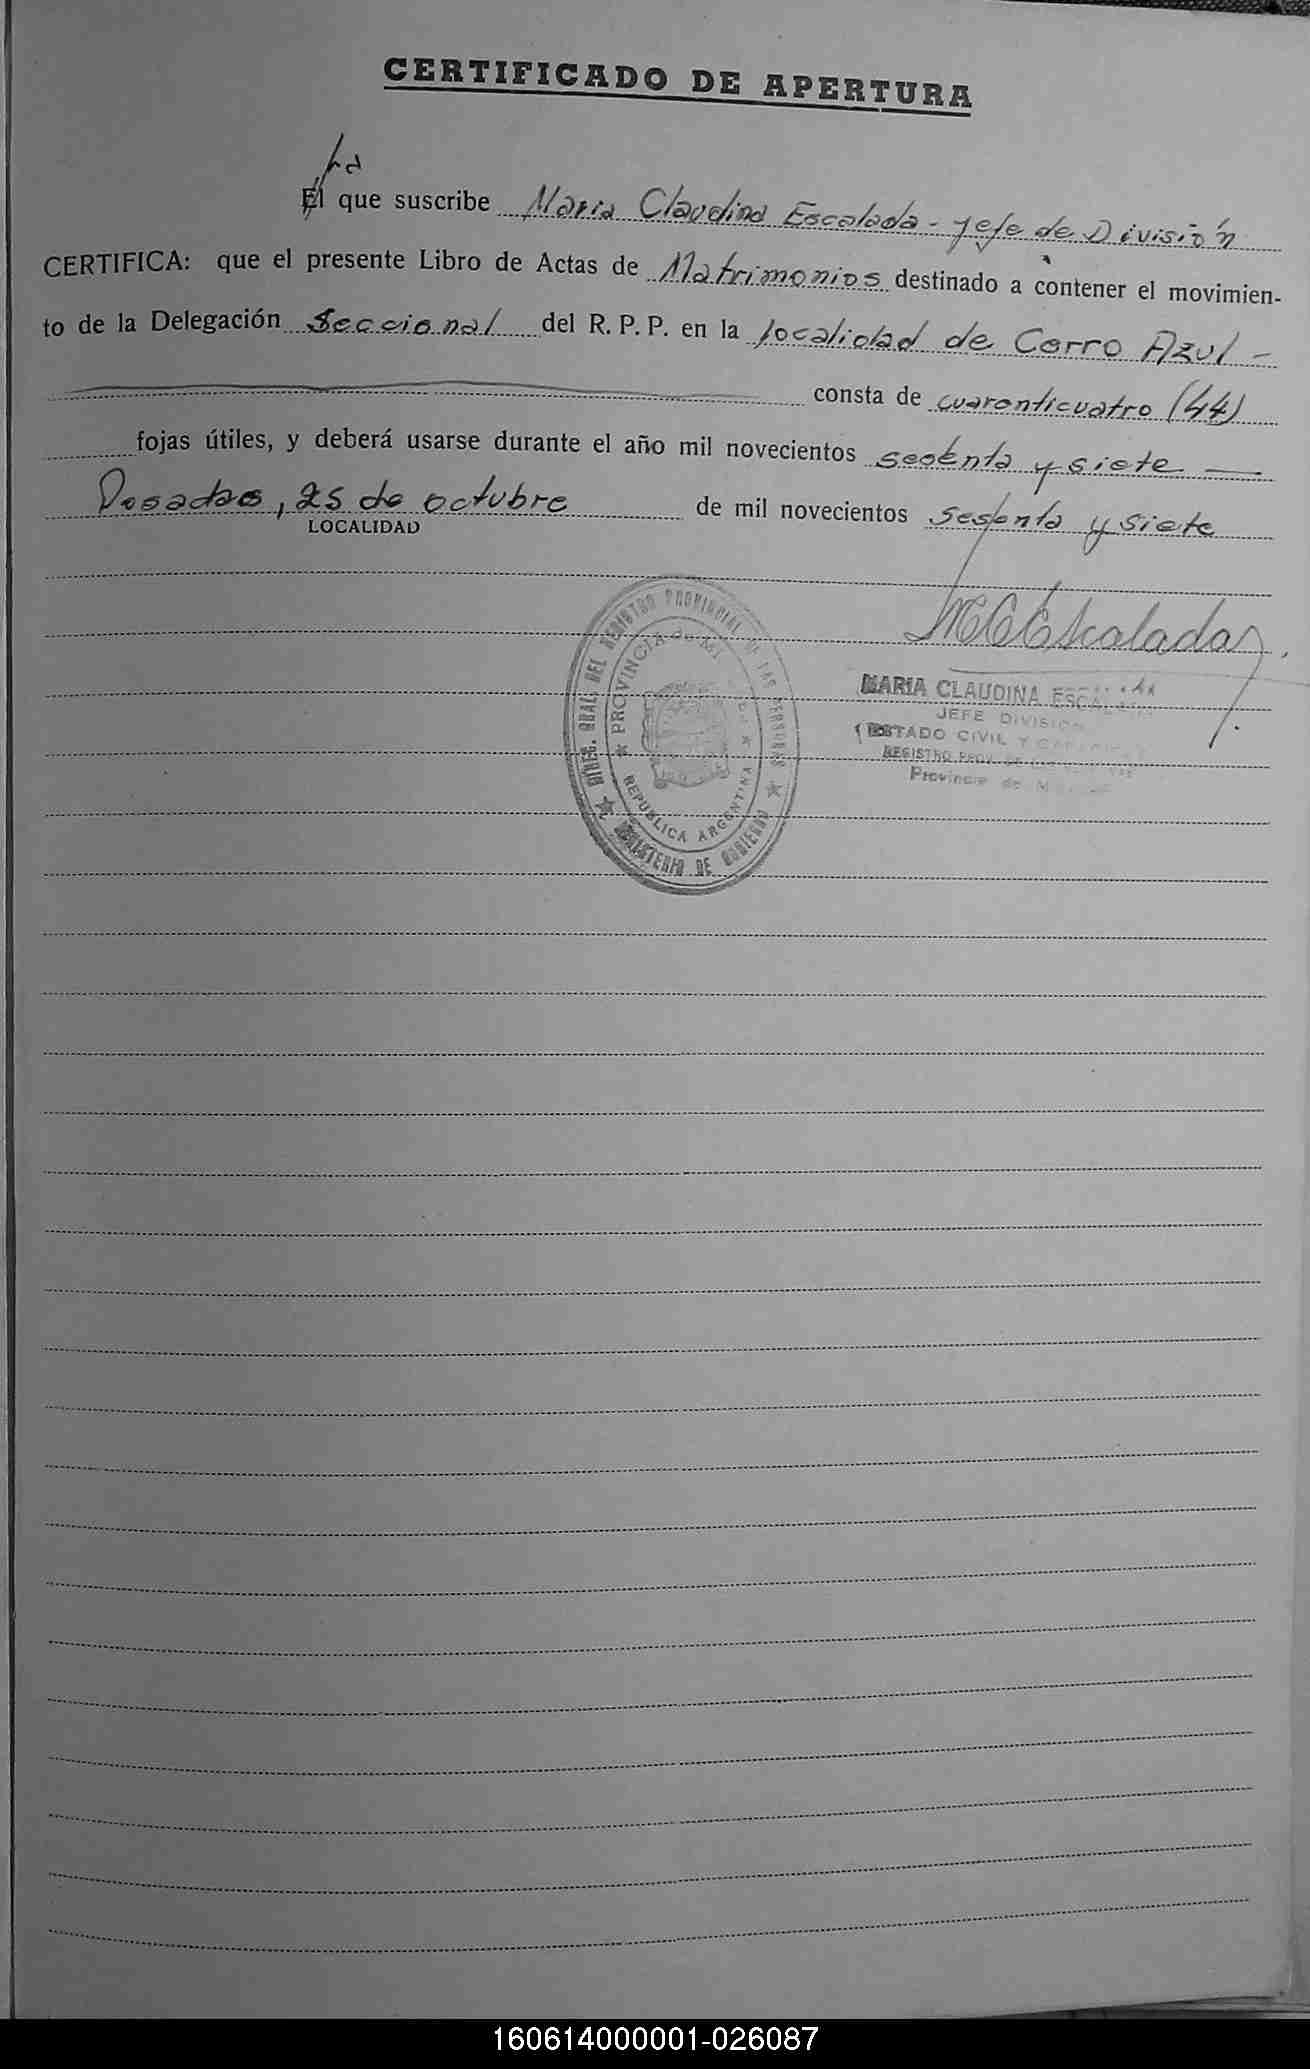 CERTIFICADO DE APERTURA
La
El que suscribe Maria Claudina Escalada - Jefe de División
CERTIFICA: que el presente Libro de Actas de Matrimonios destinado a contener el movimien-
to de la Delegación Seccional del R. P. P. en la localidad de Cerro Azul -
consta de cuarenticuatro (44)
fojas útiles, y deberá usarse durante el año mil novecientos sesenta y siete
Posadas, 25 de octubre de mil novecientos sesenta y siete
LOCALIDAD
MCEscalada
DIREC. GRAL. DEL REGISTRO PROVINCIAL DE LAS PERSONAS
PROVINCIA DE MI
REPUBLICA ARGENTINA
MINISTERIO DE GOBIERNO
MARIA CLAUDINA ESCALADA
JEFE DIVISION
ESTADO CIVIL Y
REGISTRO PROV. DE
Provincia de
160614000001-026087